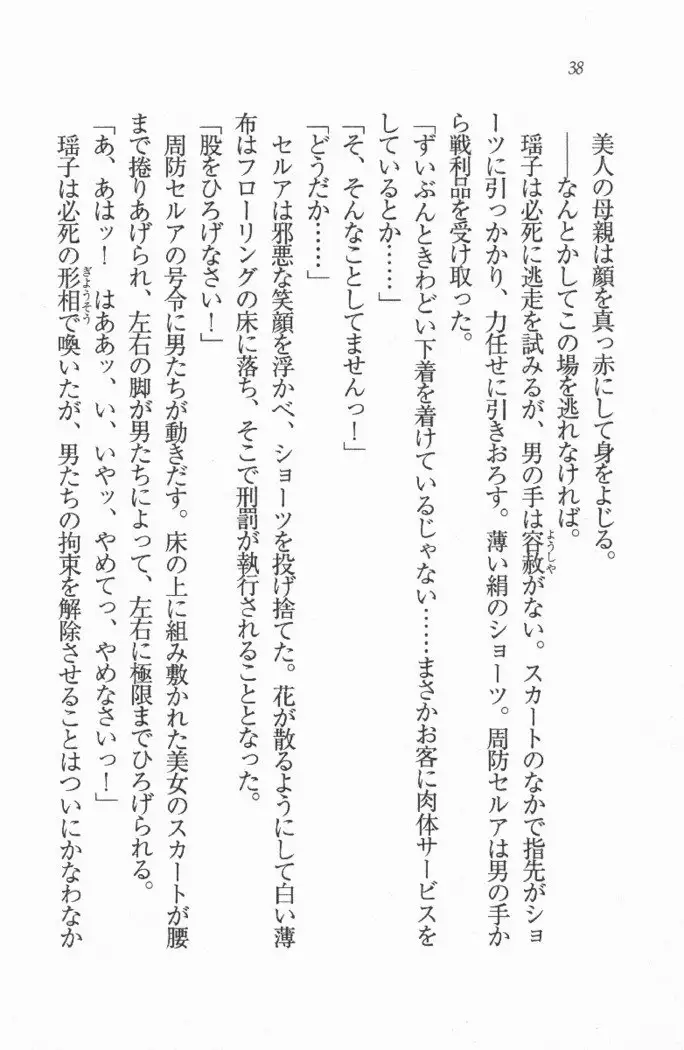 38
美人の母親は顔を真っ赤にして身をよじる。
――なんとかしてこの場を逃れなければ。
ようしや
瑶子は必死に逃走を試みるが、男の手は容赦がない。スカートのなかで指先がショ
ーツに引っかかり、力任せに引きおろす。薄い絹のショーツ。周防セルアは男の手か
ら戦利品を受け取った。
「ずいぶんときわどい下着を着けているじゃない……まさかお客に肉体サービスを
しているとか……」
「そ、そんなことしてませんっ！」
「どうだか……」
セルアは邪悪な笑顔を浮かべ、ショーツを投げ捨てた。花が散るようにして白い薄
布はフローリングの床に落ち、そこで刑罰が執行されることとなった。
「股をひろげなさい！」
周防セルアの号令に男たちが動きだす。床の上に組み敷かれた美女のスカートが腰
まで捲りあげられ、左右の脚が男たちによって、左右に極限までひろげられる。
「あ、あはッ！　はああッ、い、いやッ、やめてっ、やめなさいっ！」
ぎようそう
瑶子は必死の形相で喚いたが、男たちの拘束を解除させることはついにかなわなか